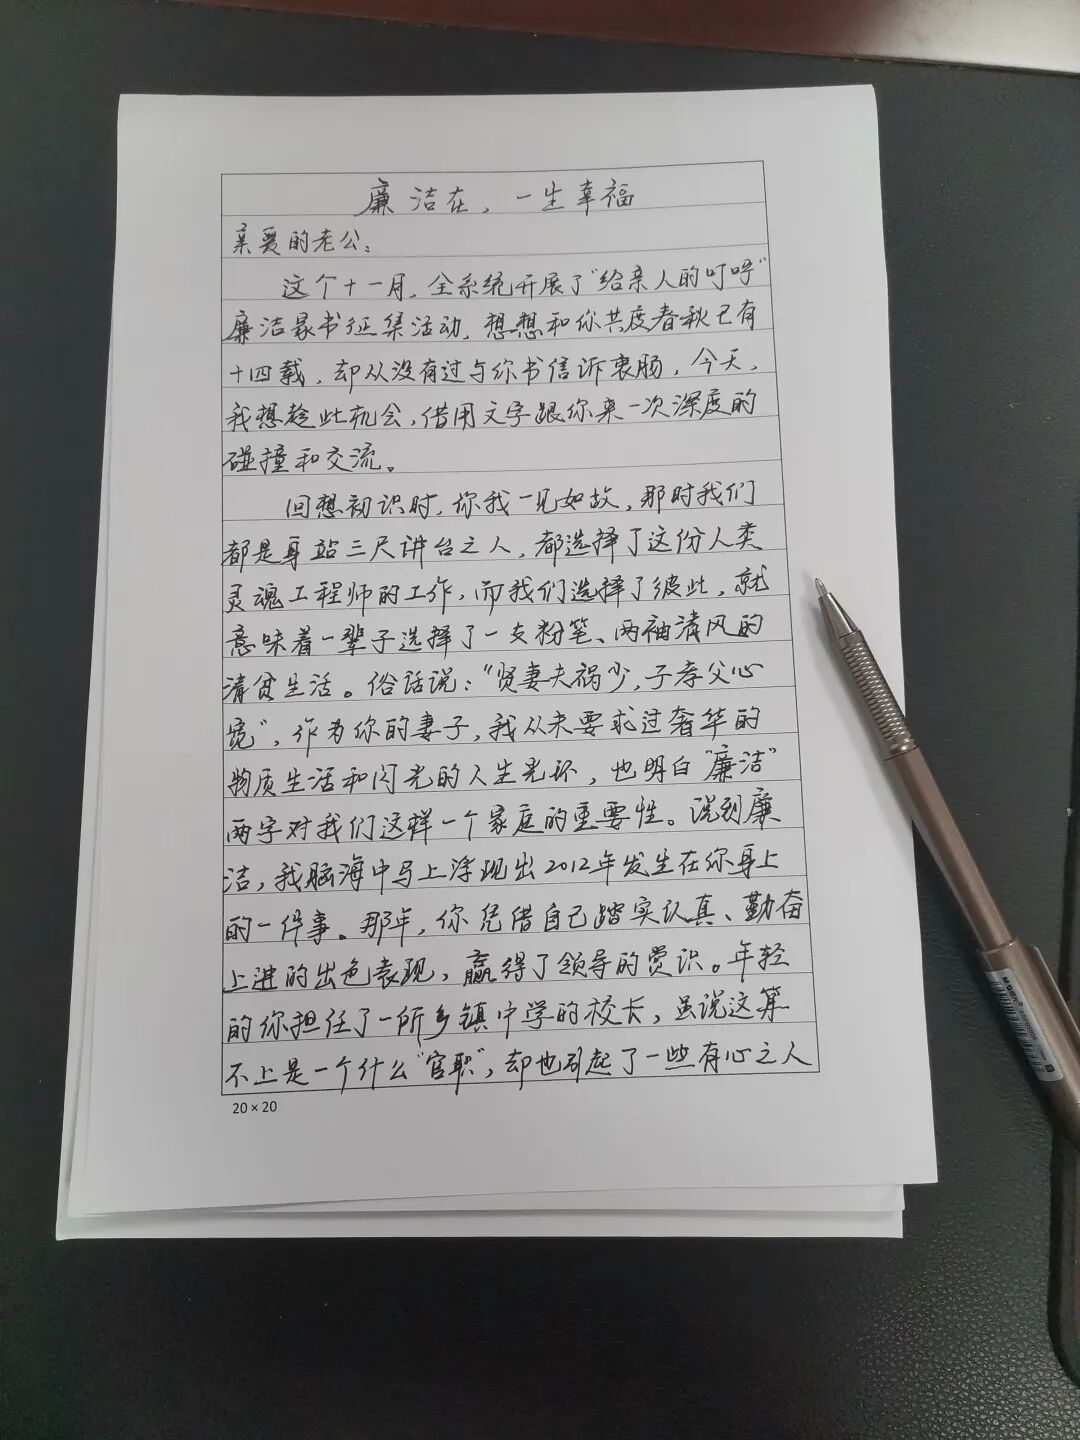 廉洁在，一生幸福
亲爱的老公：
这个十一月，全系统开展了“给亲人的叮咛”
廉洁家书征集活动，想想和你共度春秋已有
十四载，却从没有过与你书信诉衷肠，今天，
我想趁此机会，借用文字跟你来一次深度的
碰撞和交流。
回想初识时，你我一见如故，那时我们
都是身站三尺讲台之人，都选择了这份人类
灵魂工程师的工作，而我们选择了彼此，就
意味着一辈子选择了一支粉笔、两袖清风的
清贫生活。俗话说：“贤妻夫祸少，子孝父心
宽”，作为你的妻子，我从未要求过奢华的
物质生活和闪光的人生光环，也明白“廉洁”
两字对我们这样一个家庭的重要性。说到廉
洁，我脑海中马上浮现出2012年发生在你身上
的一件事。那年，你凭借自己踏实认真、勤奋
上进的出色表现，赢得了领导的赏识。年轻
的你担任了一所乡镇中学的校长，虽说这算
不上是一个什么“官职”，却也引起了一些有心之人
20×20